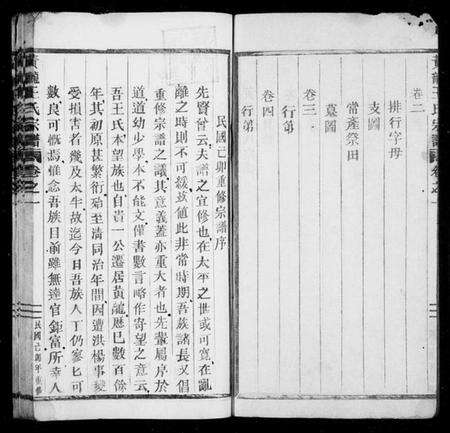 黃龍王氏宗譜
卷二
排行字母
支圖
常產祭田
墓圖
卷三
行第
卷四
行第
民國己卯重修宗譜序
先賢嘗云夫譜之宜修也在太平之世或可寬在亂
離之時則不可緩茲値此非常時期吾族諸長又倡
重修宗譜之議其意義蓋亦重大者也先輩屬序於
道道幼少學本不能文僅書數言略作寄望之意云
吾王氏本望族也自貴一公遷居黃龍歷已數百餘
年其初原甚繁衍殆至淸同治年間因遭洪楊事變
受損害者幾及太牛故迄今日吾族人丁仍寥匕可
數良可慨焉雖念吾族目前雖無達官鉅富所幸人
黃龍王氏宗譜 卷之一
民國己卯年重修